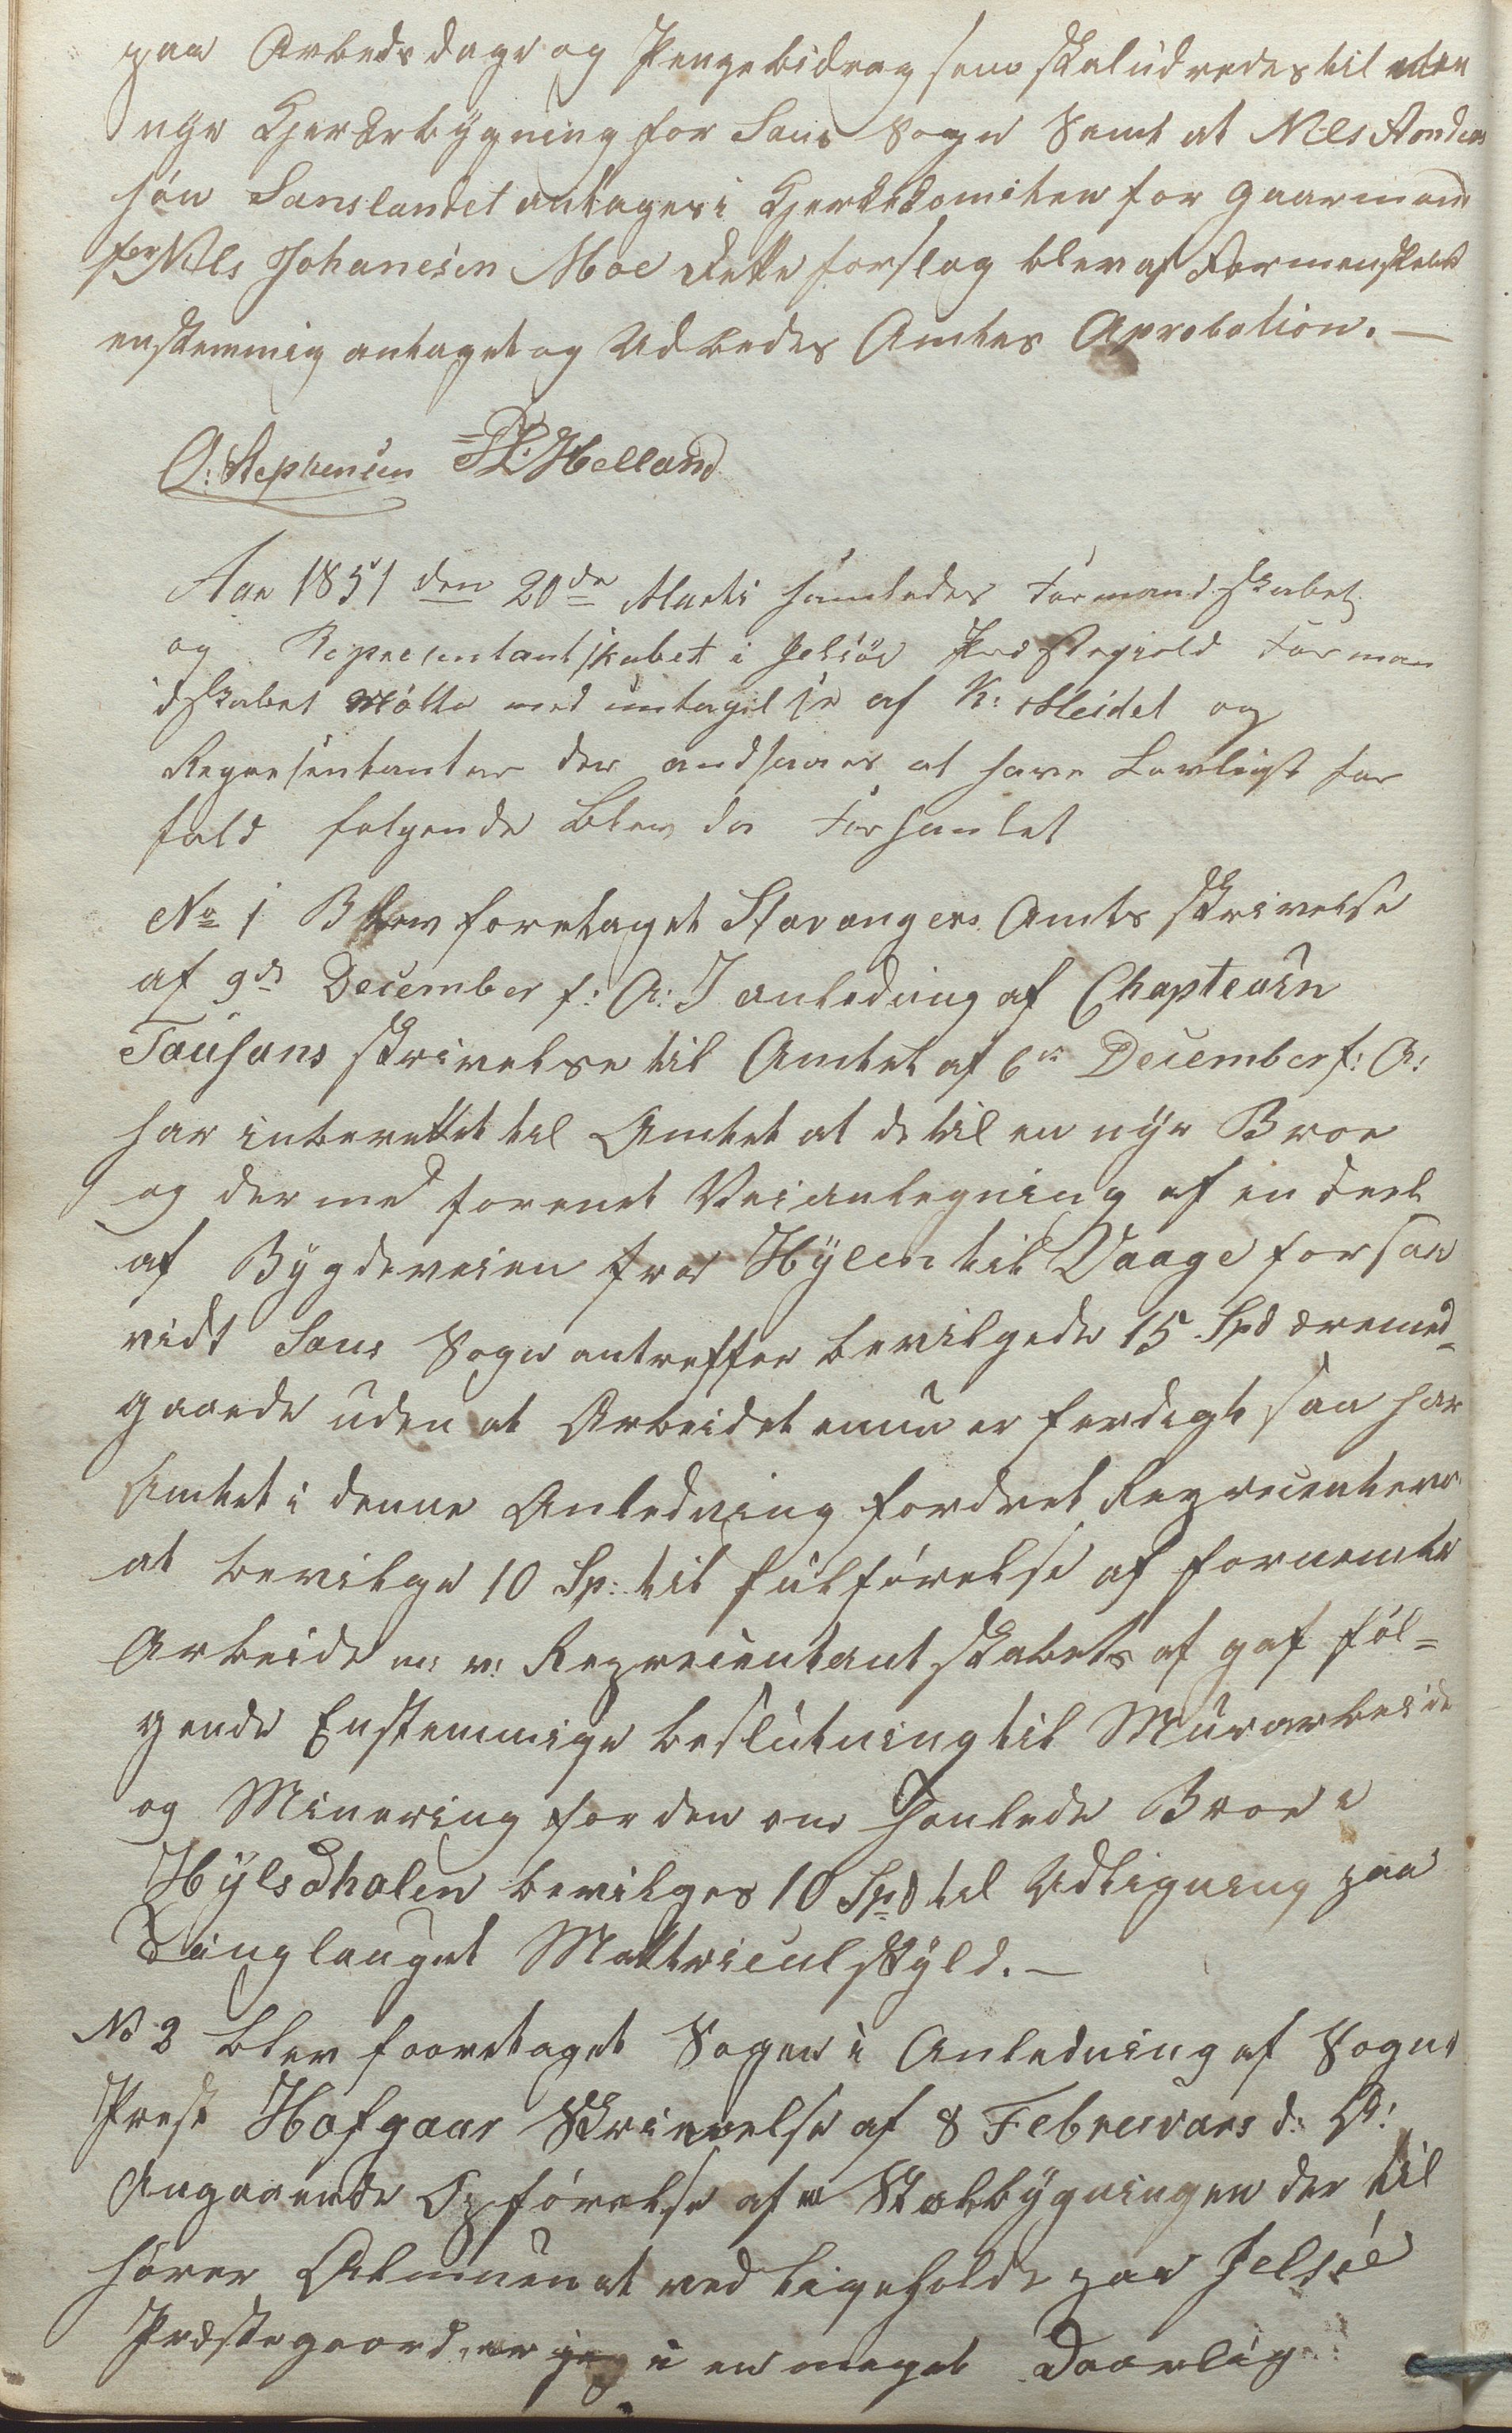 paa Arbedsdage og Pengebidrag som skal udredes til
nye Kjerkebygning for Sans Sogn Samt at Niels Andreas
søn Sanslandet antages i Kjerkekomiteen for gaarmand
Nils Johanesen Moe Dette forslag blev af Formenskabet
enstemmig antaget og Udbedes Amtes Aprobation. —
O: Stephensen H Helland
Aar 1851 den 20de Marti samledes Formandskabet
og Representantskabet i Jelsøe Præstegield Forman
dskabet Mötte med untagelse af K: Meidel og
Representanter der andsaaes at have Lovligt for
fald folgende blev da Forhanlet
No 1 Blev foretaget Stavangers Amts skrivelse
af 9de December f: A: I anledning af Chapteain
Tausans skrivelse til Amtet af 6te December f: A:
har inberettet til Amtet at de til en nye Broe
og dermed forenet Veianlegning af en deel
af Bygdeveien fra Hÿlen til Vaage forsaa
vidt Sans Sogn antreffer bevilgede 15 Spd ere med-
gaaede uden at Arbeidet ennu er ferdigt saa har
Amtet i denne Anledning fordret Representere
at bevilge 10 Sp: til fulførelse af fornemte
Arbeide m: v: Representantskabets af gaf føl=
gende Enstemmige beslutning til Murarbeide
og Minering for den om hanlede Broe i
Hÿlsdhalen bevilges 10 Spd til Udligning paa
Tinglauget Mattriculskÿld. —
No 2 blev fooretaget Sagen i Anledning af Sogne
Prest Hofgaar Skrievelse af 8 Februars d: A:
Angaaende Opførelse af Stalbÿgningen der til
hører Almuen at ved ligeholde paa Jelsøe
Præstegaard, er i en meget Daarlig